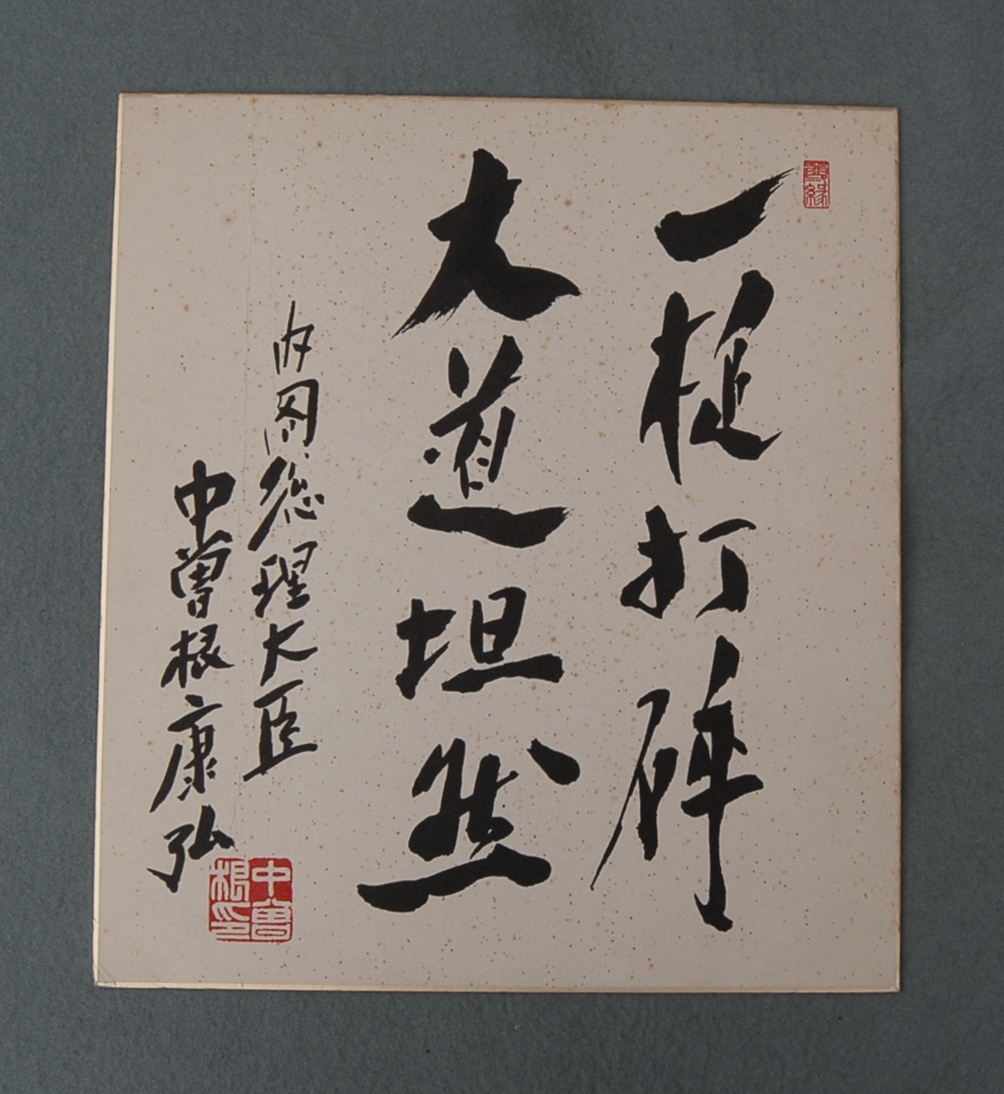 一槌打砕
大道坦然
内閣総理大臣
中曽根康弘
中曽根印